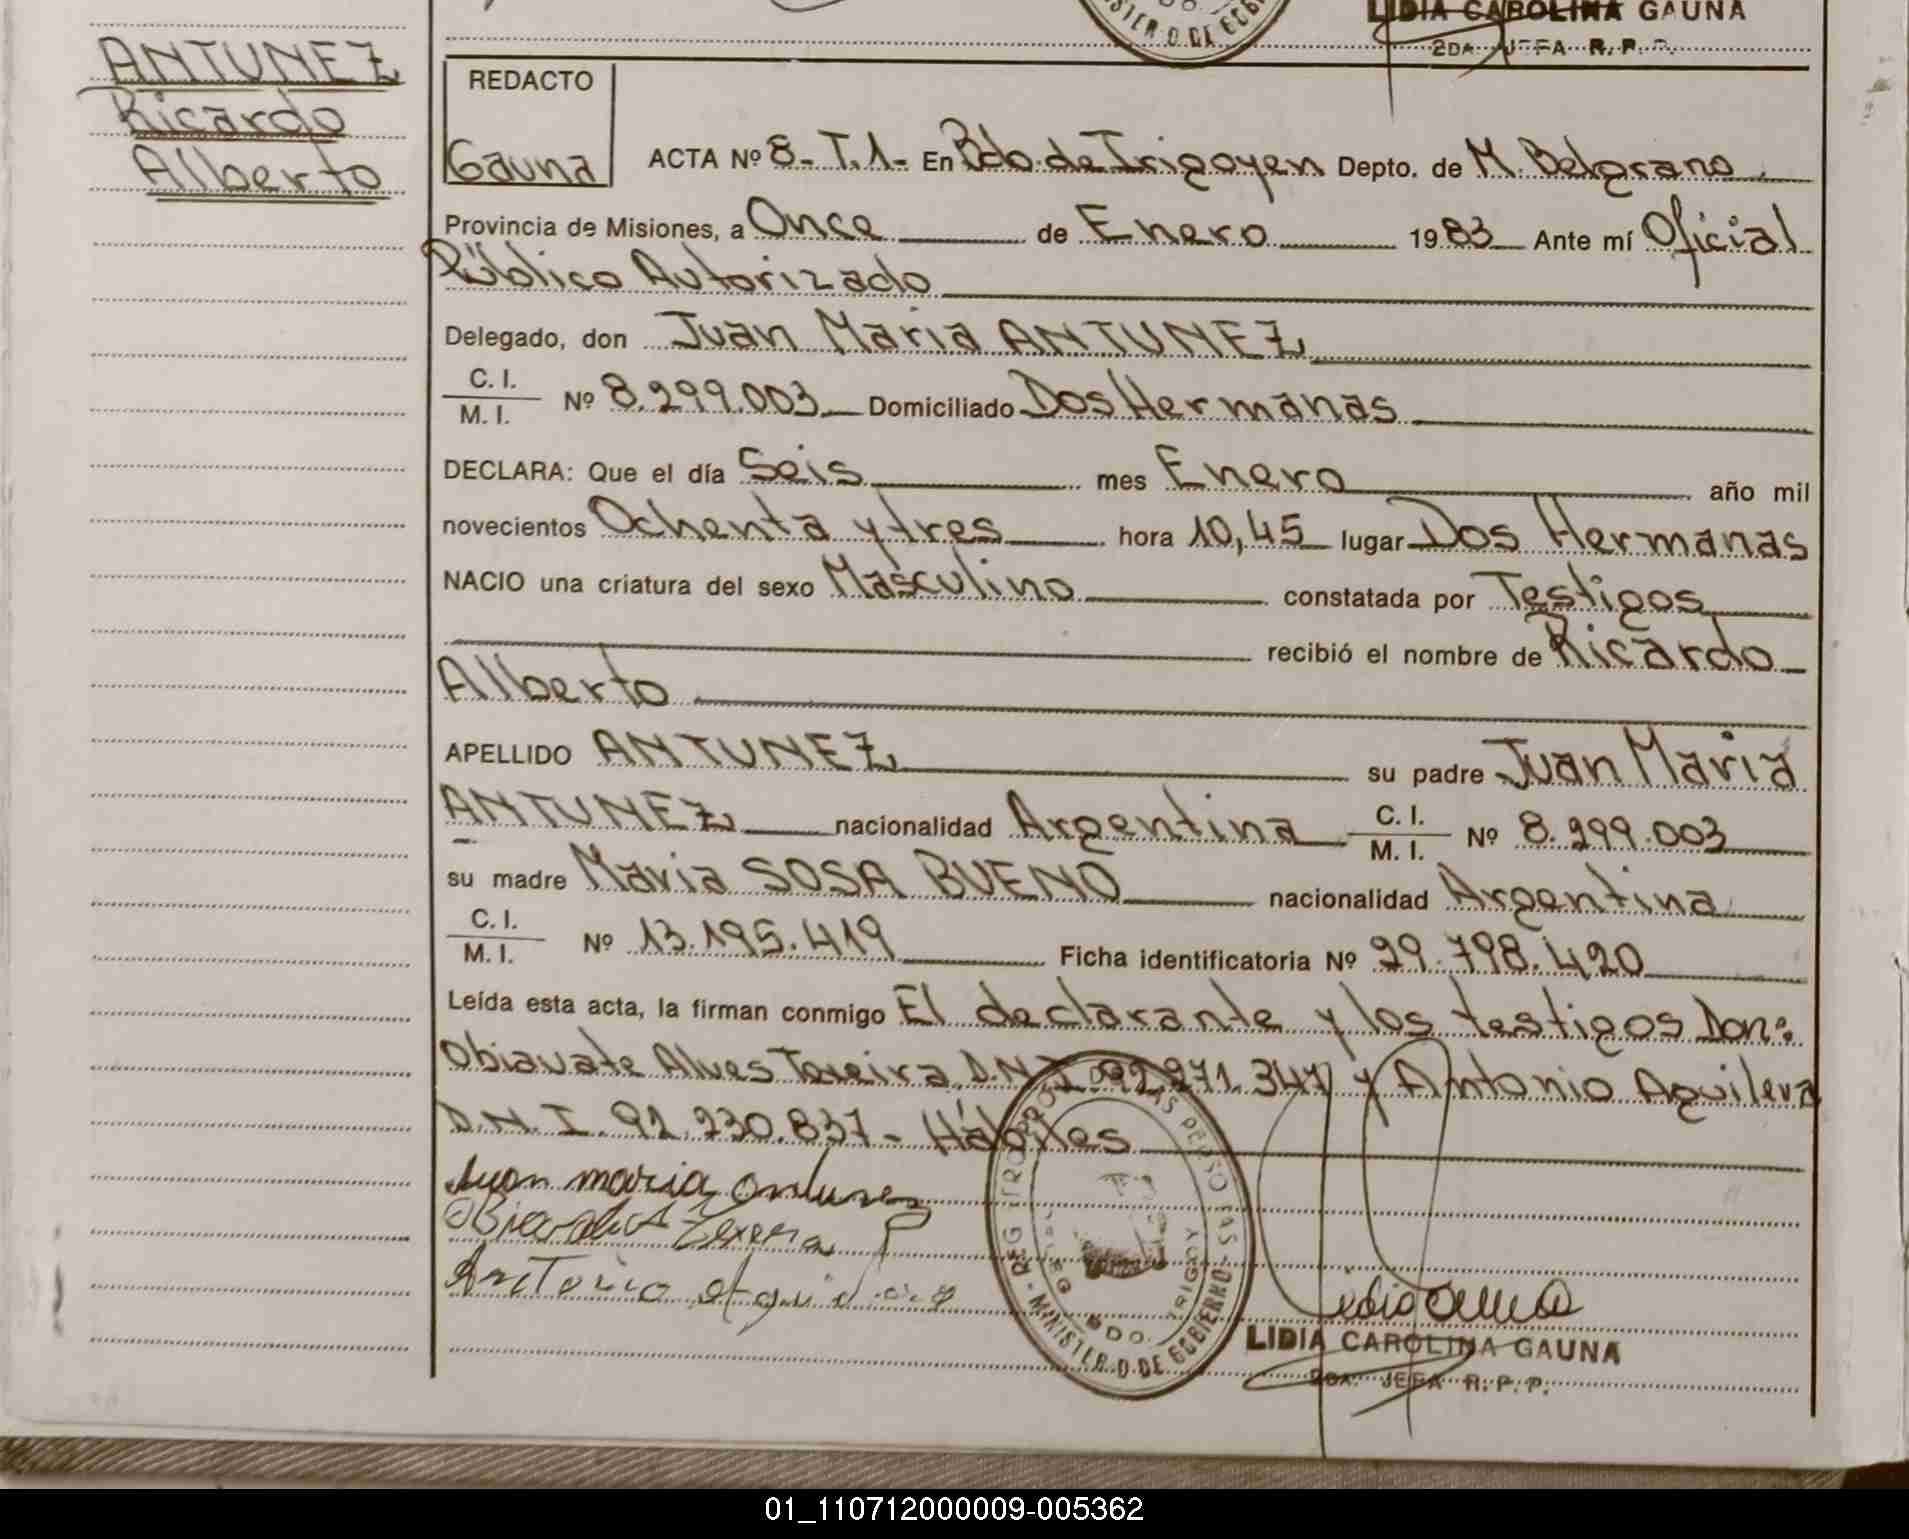 LIDIA CAROLINA GAUNA
2DA. JEFA R. P. P.
MINISTERIO DE GOBIERNO
ANTUNEZ
Ricardo
Alberto
REDACTO
Gauna
ACTA Nº 8-T.1- En Bdo. de Irigoyen Depto. de M. Belgrano
Provincia de Misiones, a Once de Enero 1983 Ante mí Oficial
Público Autorizado
Delegado, don Juan Maria ANTUNEZ
C. I.
M. I. Nº 8.299.003 Domiciliado Dos Hermanas
DECLARA: Que el día Seis mes Enero año mil
novecientos Ochenta y tres hora 10,45 lugar Dos Hermanas
NACIO una criatura del sexo Masculino constatada por Testigos
recibió el nombre de Ricardo
Alberto
APELLIDO ANTUNEZ su padre Juan Maria
ANTUNEZ nacionalidad Argentina C. I. M. I. Nº 8.299.003
su madre Maria SOSA BUENO nacionalidad Argentina
C. I.
M. I. Nº 13.195.419 Ficha identificatoria Nº 29.798.420
Leída esta acta, la firman conmigo El declarante y los testigos Don:
Alves D.N.I. 92.271.347 y Antonio Aguilera
D.N.I. 92.230.837- Hábiles
Juan maria antunez
Antonio
MINISTERIO DE GOBIERNO
LIDIA CAROLINA GAUNA
2DA. JEFA R. P. P.
01_110712000009-005362